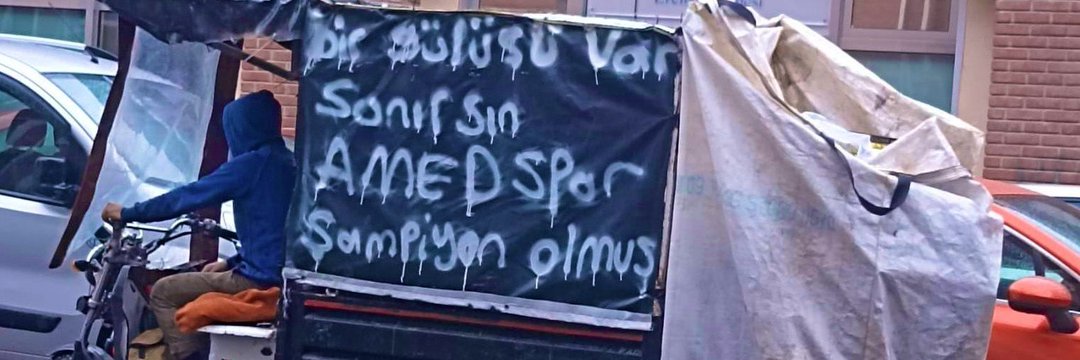 bir gülüşü var
Sanırsın
AMEDSpor
Şampiyon olmuş